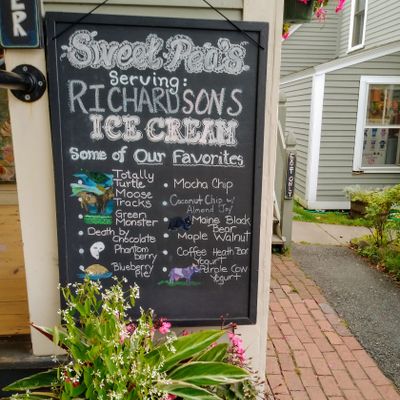 ER
Sweet Pea's
Serving:
RICHARDSONS
ICE CREAM
Some of Our Favorites
Totally
Turtle
Moose
Tracks
Green
Monster
Death by
Chocolate
Phantom
berry
Blueberry
Pie
• Mocha Chip
• Coconut Chip w/
Almond Joy
• Maine Black
Bear
• Maple Walnut
• Coffee Heath Bar
Yogurt
• Purple Cow
Yogurt